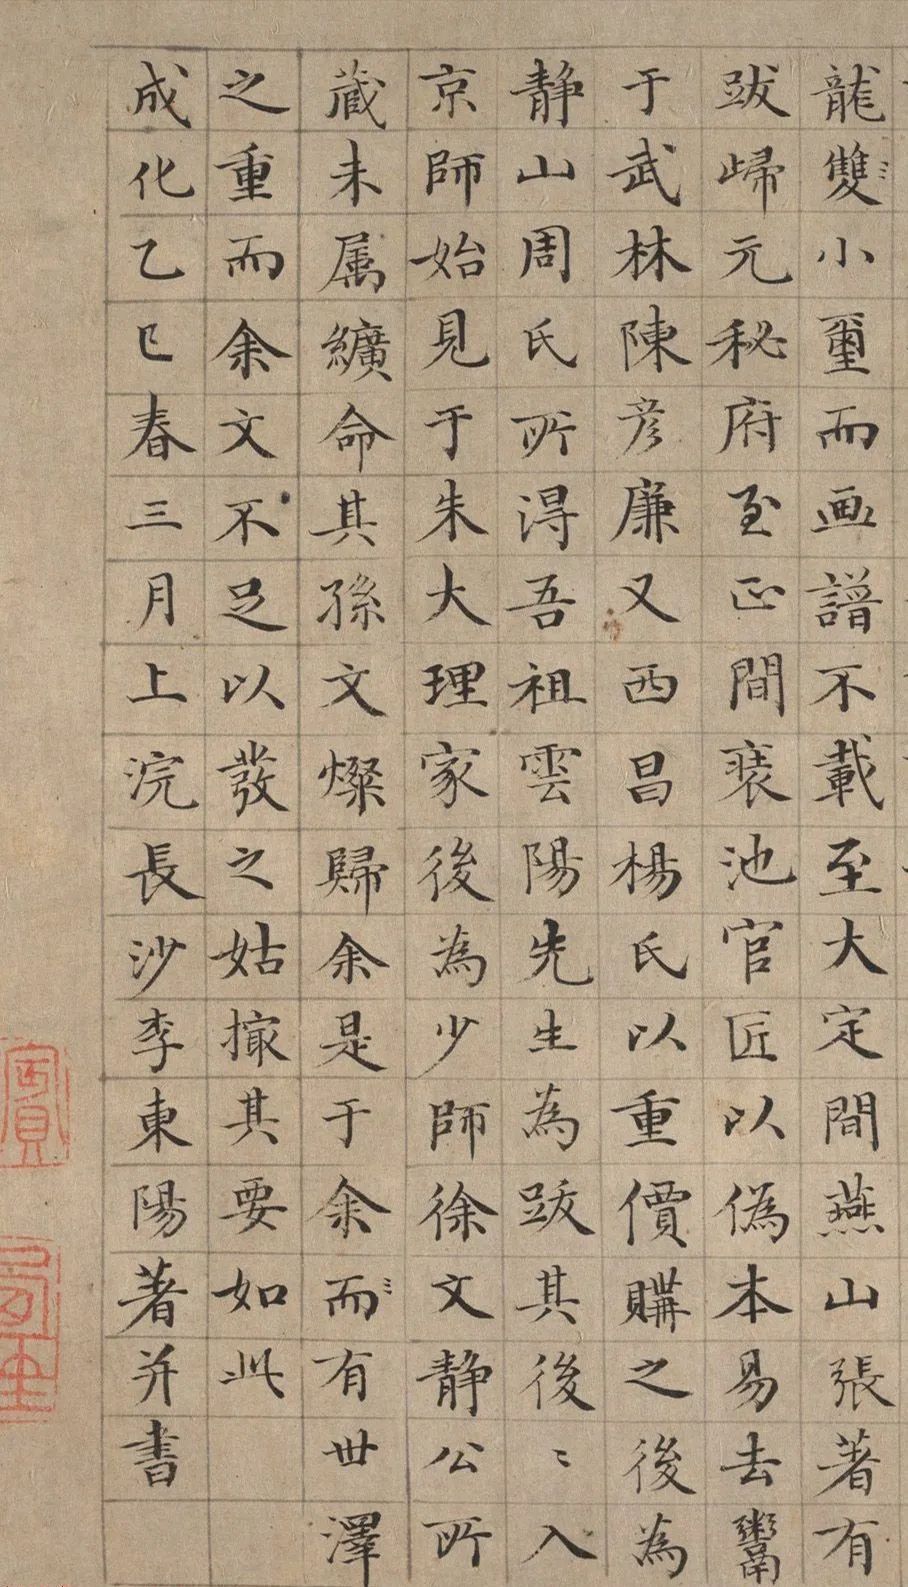 龍雙小璽而画譜不載至大定間燕山張著有
跋歸元秘府至正間裴池官匠以偽本易去鬻
于武林陳彦廉又西昌楊氏以重價購之後為
静山周氏所得吾祖雲陽先生為跋其後〻入
京師始見于朱大理家後為少師徐文静公所
蔵未属纊命其孫文燦歸余是于余而有世澤
之重而余文不足以發之姑撮其要如此
成化乙巳春三月上浣長沙李東陽著并書